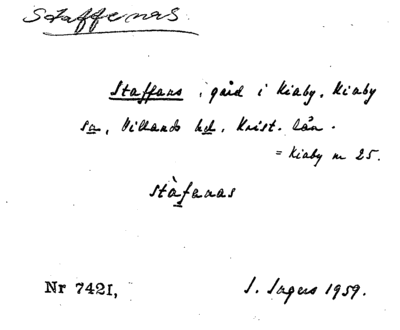 Staffenas
Staffans, gård i Kiaby, Kiaby
sn, Villands hd, Krist. län.
= Kiaby nr 25.
stàfenas
Nr 7421, I. Ingers 1959.